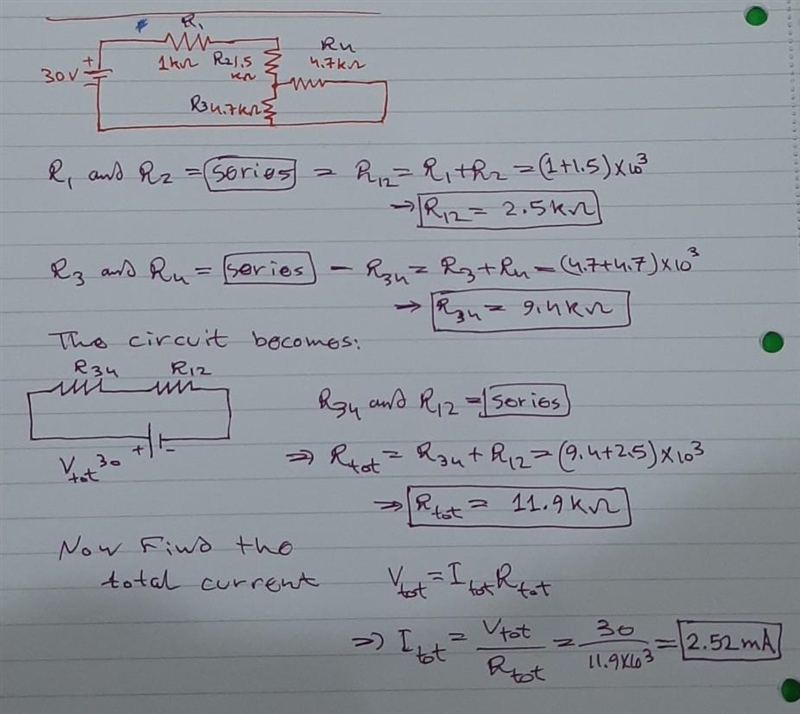 R1
R4
30V + 1kΩ R2 1.5 kΩ 4.7kΩ
R3 4.7kΩ
R1 and R2 = series = R12 = R1 + R2 = (1+1.5)×10³
→ R12 = 2.5kΩ
R3 and R4 = series - R34 = R3 + R4 = (4.7+4.7)×10³
→ R34 = 9.4kΩ
The circuit becomes:
R34 R12
R34 and R12 = series
Vtot 30 + -
⇒ Rtot = R34 + R12 = (9.4+2.5)×10³
⇒ Rtot = 11.9kΩ
Now Find the
total current
Vtot = Itot Rtot
⇒ Itot = Vtot / Rtot = 30 / 11.9×10³ = 2.52mA